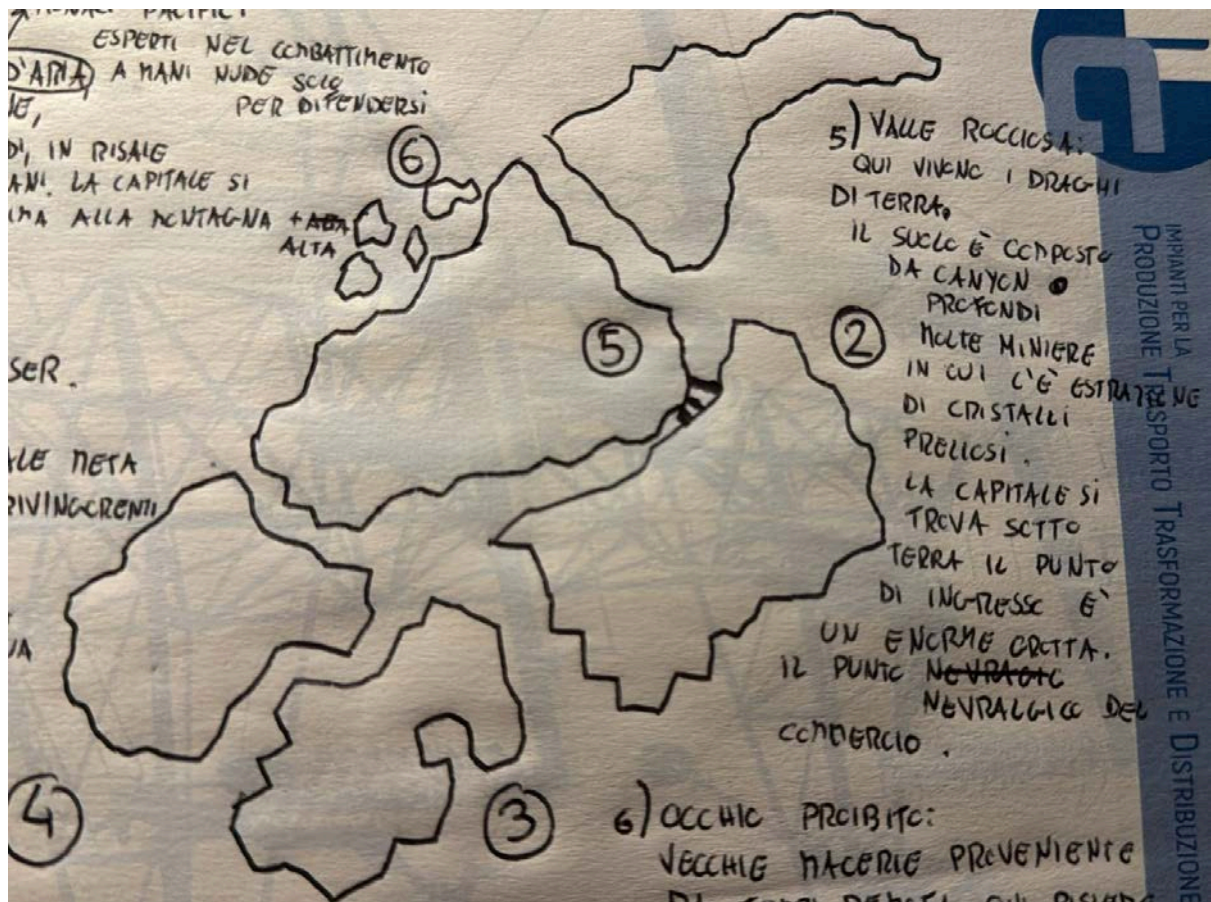 MONACI PACIFICI
ESPERTI NEL COMBATTIMENTO
D'ARIA A MANI NUDE SOLO
NE,
PER DIFENDERSI
DI, IN RISALE
ANI. LA CAPITALE SI
ALLA MONTAGNA +
ALTA
SER.
ALE META
UA
6
5
2
4
3
5) VALLE ROCCIOSA:
QUI VIVONO I DRAGHI
DI TERRA.
IL SUOLO È COMPOSTO
DA CANYON
PROFONDI
MOLTE MINIERE
IN CUI C'È ESTRAZIONE
DI CRISTALLI
PREZIOSI.
LA CAPITALE SI
TROVA SOTTO
TERRA IL PUNTO
DI INGRESSO È
UN ENORME GROTTA.
IL PUNTO NEVRAGIC
NEVRALGICO DEL
COMMERCIO.
6) OCCHIO PROIBITO:
VECCHIE MACERIE PROVENIENTE
IMPIANTI PER LA
PRODUZIONE TRASPORTO TRASFORMAZIONE E DISTRIBUZIONE